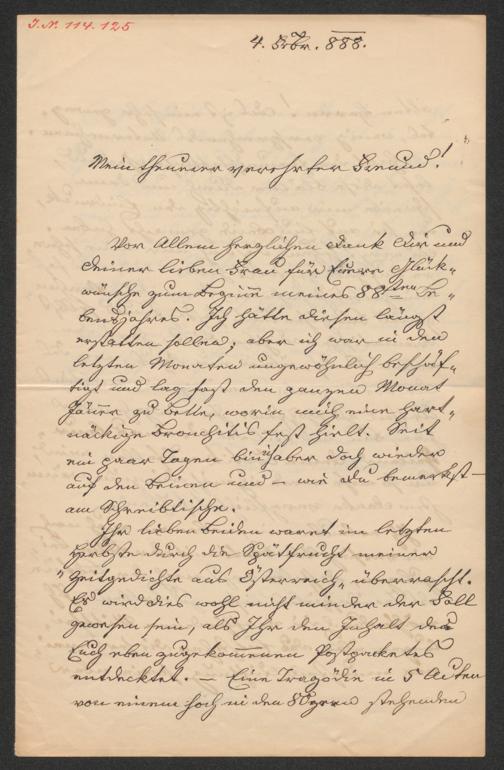 I. N. 114.125
4. Febr. 888.
Mein theuerer verehrter Freund!
Vor Allem herzlichen Dank Dir und
Deiner lieben Frau für Euere Glück-
wünsche zum Beginne meines 88ten Le-
bensjahres. Ich hätte diesen längst
erstatten sollen; aber ich war in den
letzten Monaten ungewöhnlich beschäf-
tigt und lag fast den ganzen Monat
Jäner zu Bette, worin mich eine hart-
näckige Bronchitis fest hielt. Seit
ein paar Tagen bin ich aber doch wieder
auf den Beinen und – wie Du bemerkst –
am Schreibtische.
Ihr lieben Beiden waret im letzten
Herbste durch die Spätfrucht meiner
"Zeitgedichte aus Österreich" überrascht.
Es wird dies wohl nicht minder der Fall
gewesen sein, als Ihr den Inhalt des
Euch eben zugekommenen Postpacketes
entdecktet. – Eine Tragödie in 5 Acten
von einem hoch in den 80gern stehenden